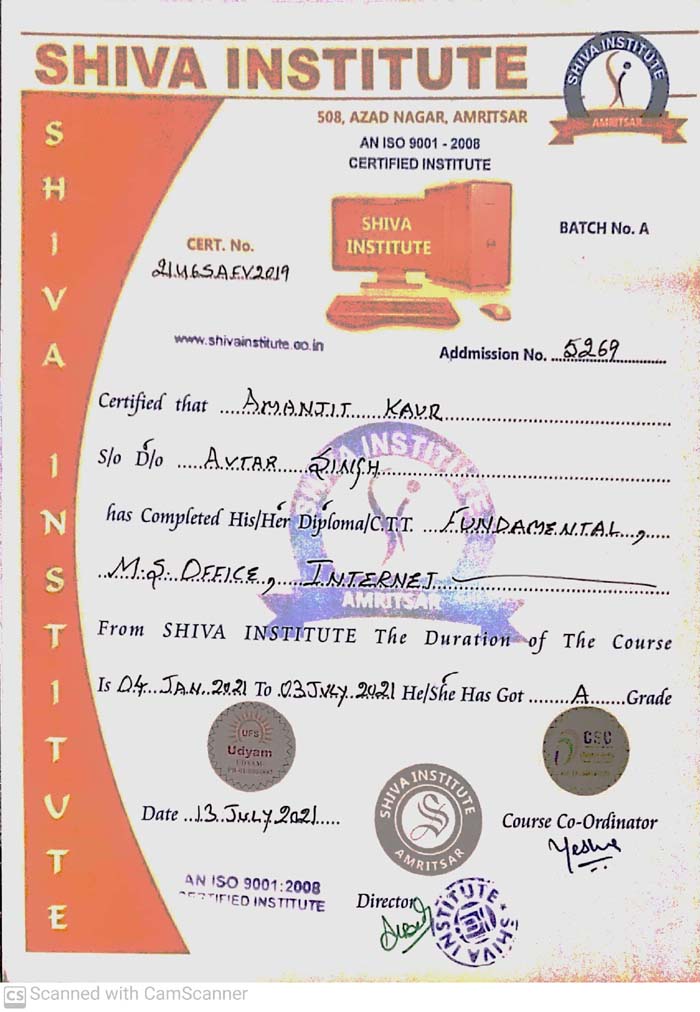 SHIVA INSTITUTE
SHIVA INSTITUTE
AMRITSAR
508, AZAD NAGAR, AMRITSAR
AN ISO 9001 - 2008
CERTIFIED INSTITUTE
SHIVA INSTITUTE
SHIVA
INSTITUTE
BATCH No. A
CERT. No.
www.shivainstitute.co.in
Admission No. ...5269...
Certified that ....AMANJIT KAUR....
S/o D/o ....AVTAR SINGH....
has Completed His/Her Diploma/C.T.T. ...FUNDAMENTAL,...
...M.S. OFFICE, INTERNET
SHIVA INSTITUTE
AMRITSAR
From SHIVA INSTITUTE The Duration of The Course
Is 04 JAN 2021 To 03 JULY 2021 He/She Has Got ....A....Grade
UFS
Udyam
UDYAM
CSC
Date ..13 JULY 2021.....
SHIVA INSTITUTE
S
AMRITSAR
Course Co-Ordinator
AN ISO 9001:2008
CERTIFIED INSTITUTE
Director
SHIVA INSTITUTE
CS Scanned with CamScanner